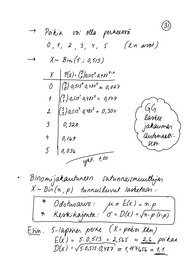 ③
→ Poikia voi olla perheessä
0, 1, 2, 3, 4, 5 (k:n arvot)
→ X ~ Bin(5; 0,513)
X P(X=k) = (5 k) 0,513ᵏ 0,487⁵⁻ᵏ
0 (5 0) 0,513⁰ 0,487⁵ ≈ 0,027
1 (5 1) 0,513¹ 0,487⁴ ≈ 0,144
2 (5 2) 0,513² 0,487³ ≈ 0,304
3 0,320
4 0,169
5 0,036
yht. 1,00
GG
laskee
jakauman
automaatti-
sesti
• Binomijakautuneen satunnaismuuttujan
X ~ Bin(n, p) tunnusluvut lasketaan:
• Odotusarvo: μ = E(X) = n·p
• Keskihajonta: σ = D(X) = √n·p·(1-p)
Esim. 5-lapsinen perhe (X = poikien lkm)
E(X) = 5·0,513 = 2,565 ≈ 2,6 poikaa
D(X) = √5·0,513·0,487 = 1,117656 ≈ 1,1